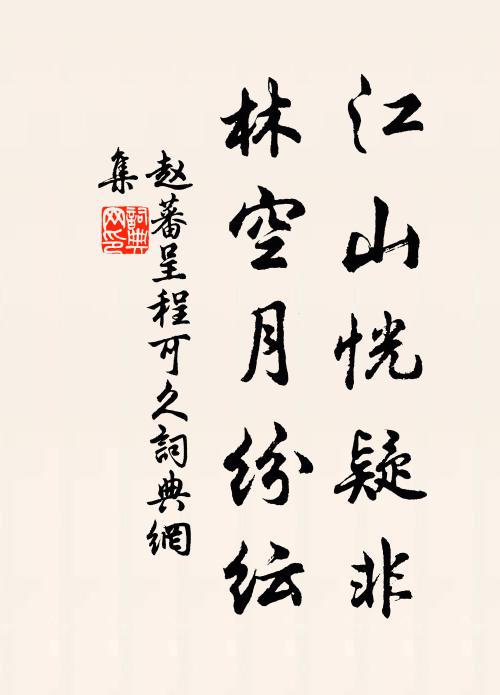 江山恍疑非
林空月纷纭
赵蕃呈程可久詞典網
集
詞典网印